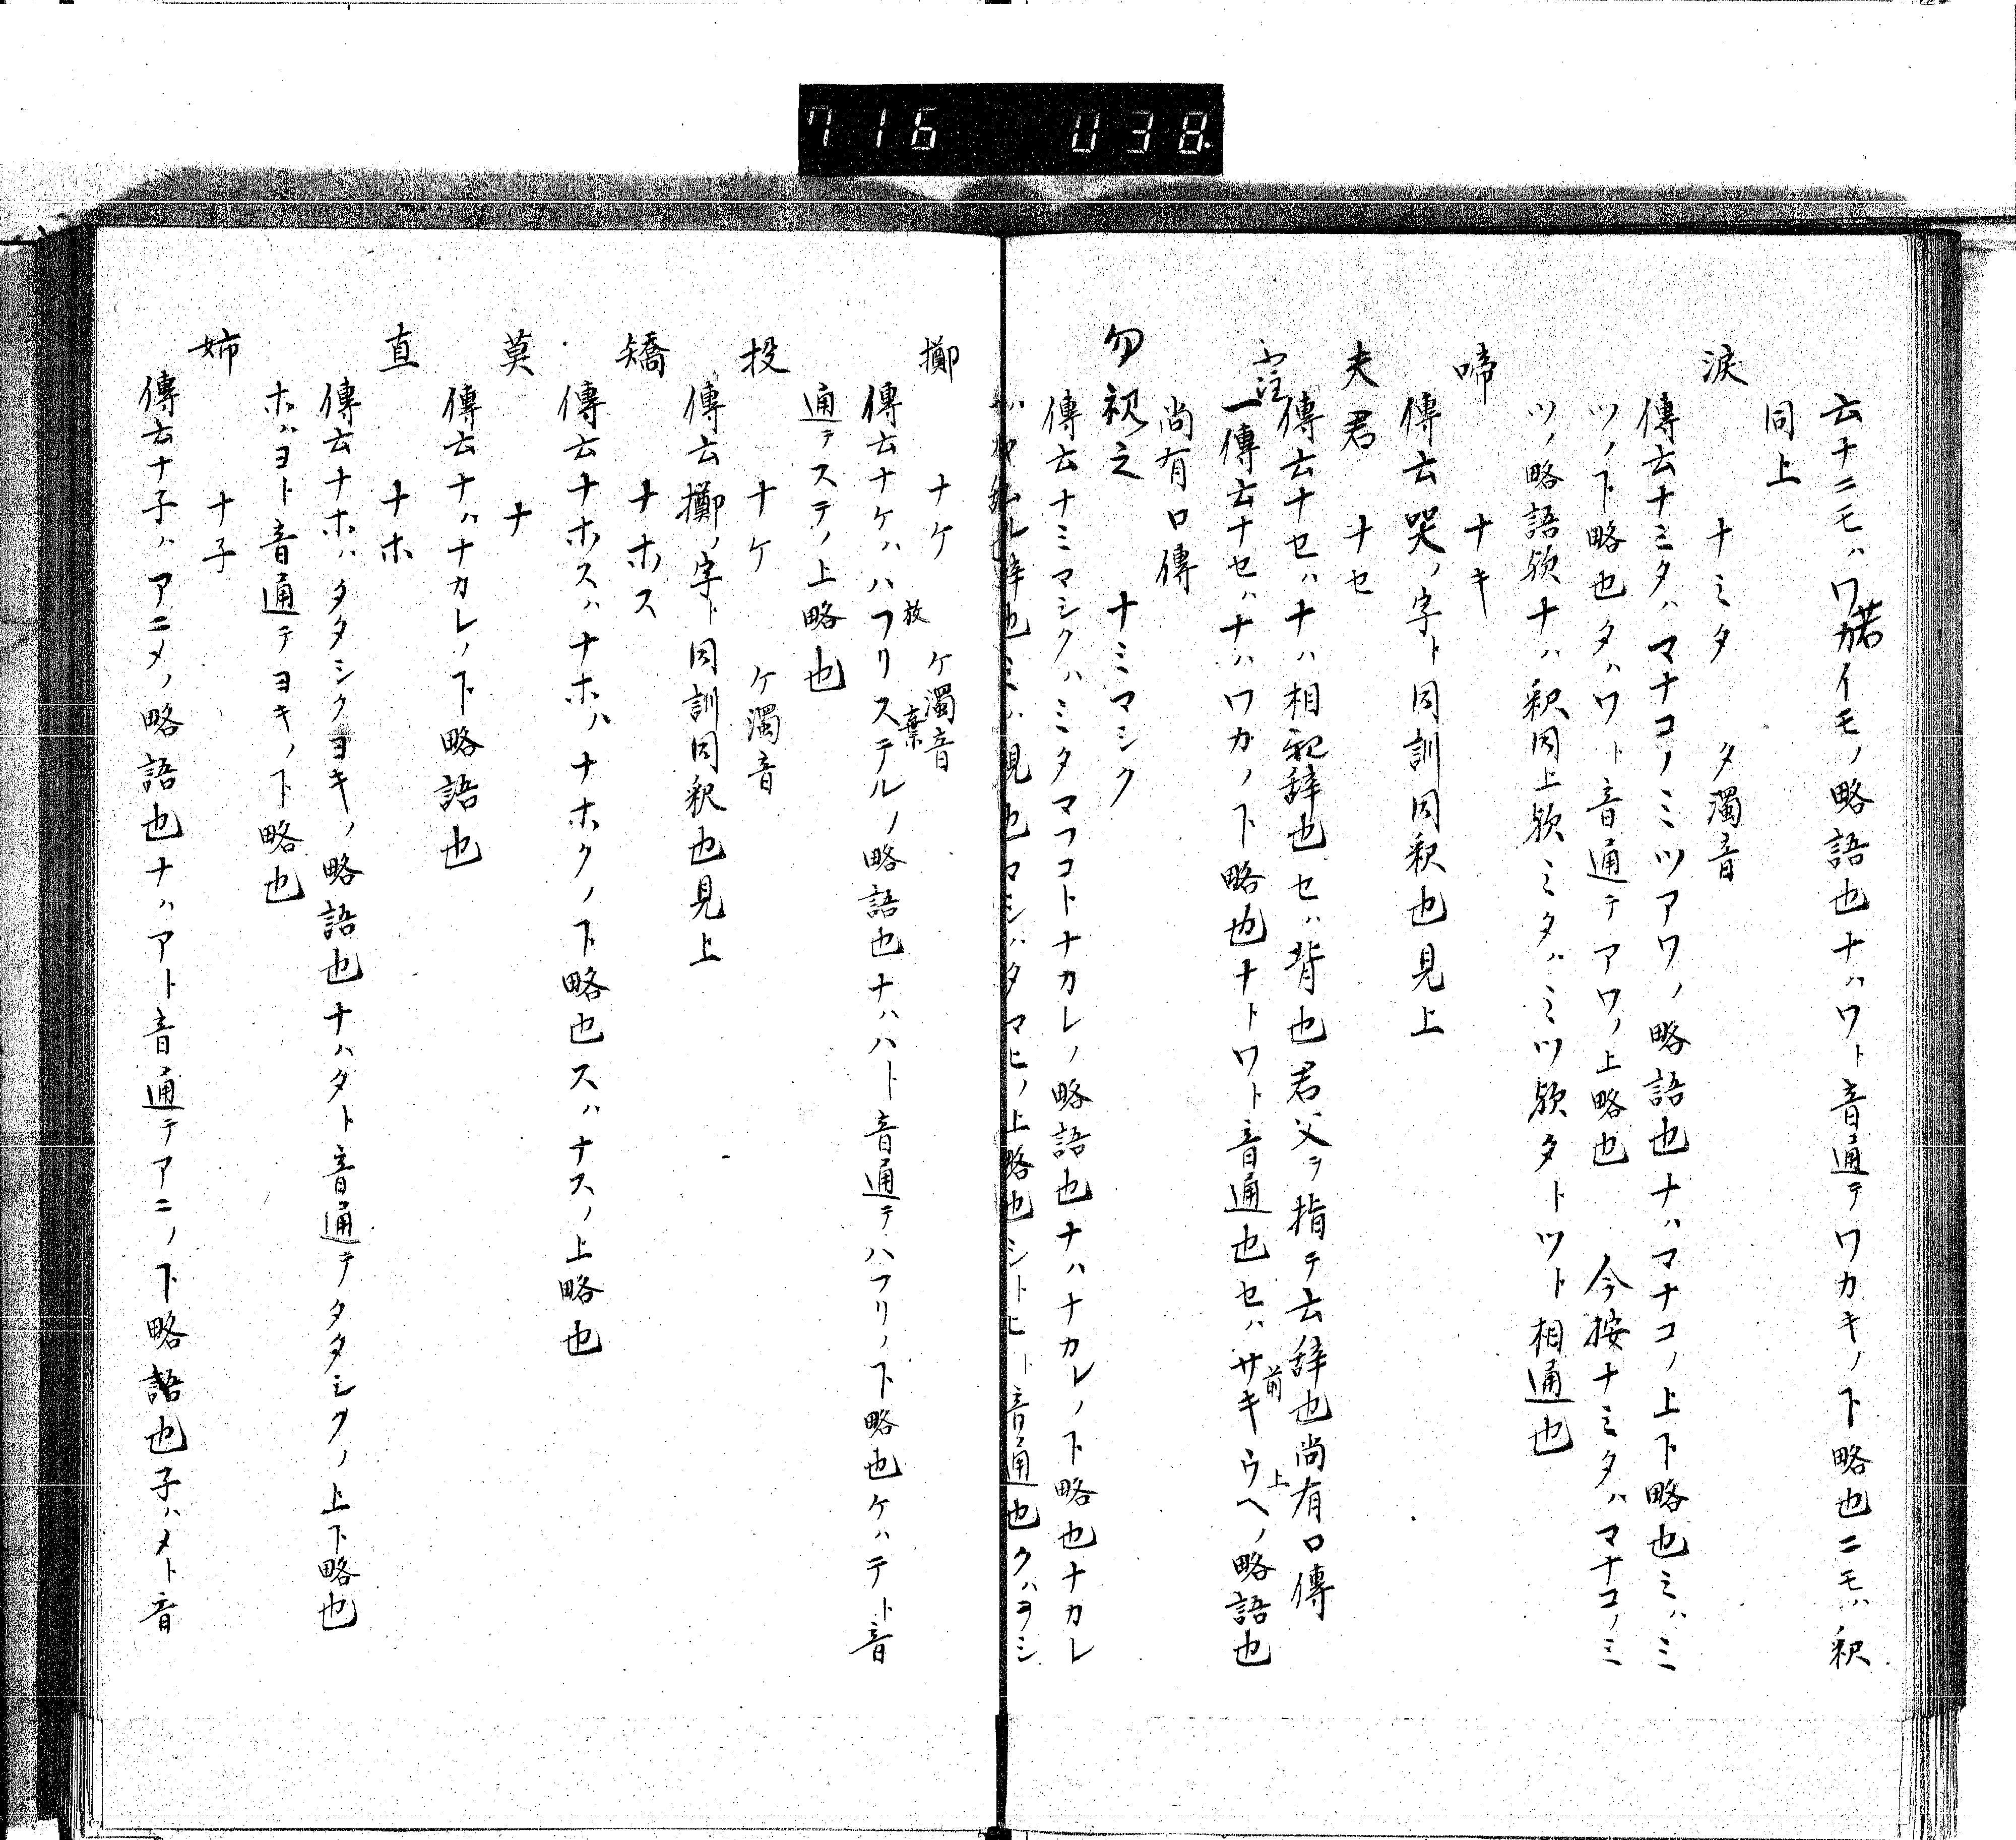 716 038
云ナニモハワカイモノ略語也ナハワト音通テワカキノ下略也ニモハ釈
若
同上
涙 ナミタ タ濁音
傳云ナミタハマナコノミツアワノ略語也ナハマナコノ上下略也ミハミ
ツノ下略也タハワト音通テアワノ上略也 今按ナミタハマナコノミ
ツノ略語欤ナハ釈同上欤ミタハミツ欤タトツト相通也
啼 ナキ
傳云哭ノ字ト同訓同釈也見上
夫君 ナセ
傳云ナセハナハ相親辞也セハ背也君父ヲ指テ云辞也尚有口傳
一傳云ナセハナハワカノ下略也ナトワト音通也セハサキウヘノ略語也
前 上
尚有口傳
勿視之 ナミマシク
傳云ナミマシクハミタマフコトナカレノ略語也ナハナカレノ下略也ナカレ
辞也ミハ見也マシハタマヒノ上略也シトヒト音通也クハヲシ
擲 ナケ ケ濁音
傳云ナケハハフリステルノ略語也ナハハト音通テハフリノ下略也ケハテト音
放 棄
通テステノ上略也
投 ナケ ケ濁音
傳云擲ノ字ト同訓同釈也見上
矯 ナホス
傳云ナホスハナホハナホクノ下略也スハナスノ上略也
莫 ナ
傳云ナハナカレノ下略語也
直 ナホ
傳云ナホハタタシクヨキノ略語也ナハタト音通テタタシクノ上下略也
ホハヨト音通テヨキノ下略也
姉 ナ子
傳云ナ子ハアニメノ略語也ナハアト音通テアニノ下略語也子ハメト音